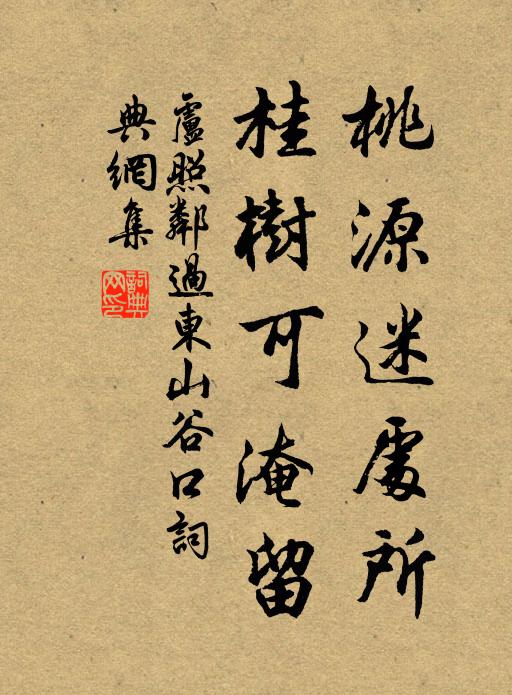 桃源迷處所
桂樹可淹留
盧照鄰過東山谷口詞
典網集
詞典
网印